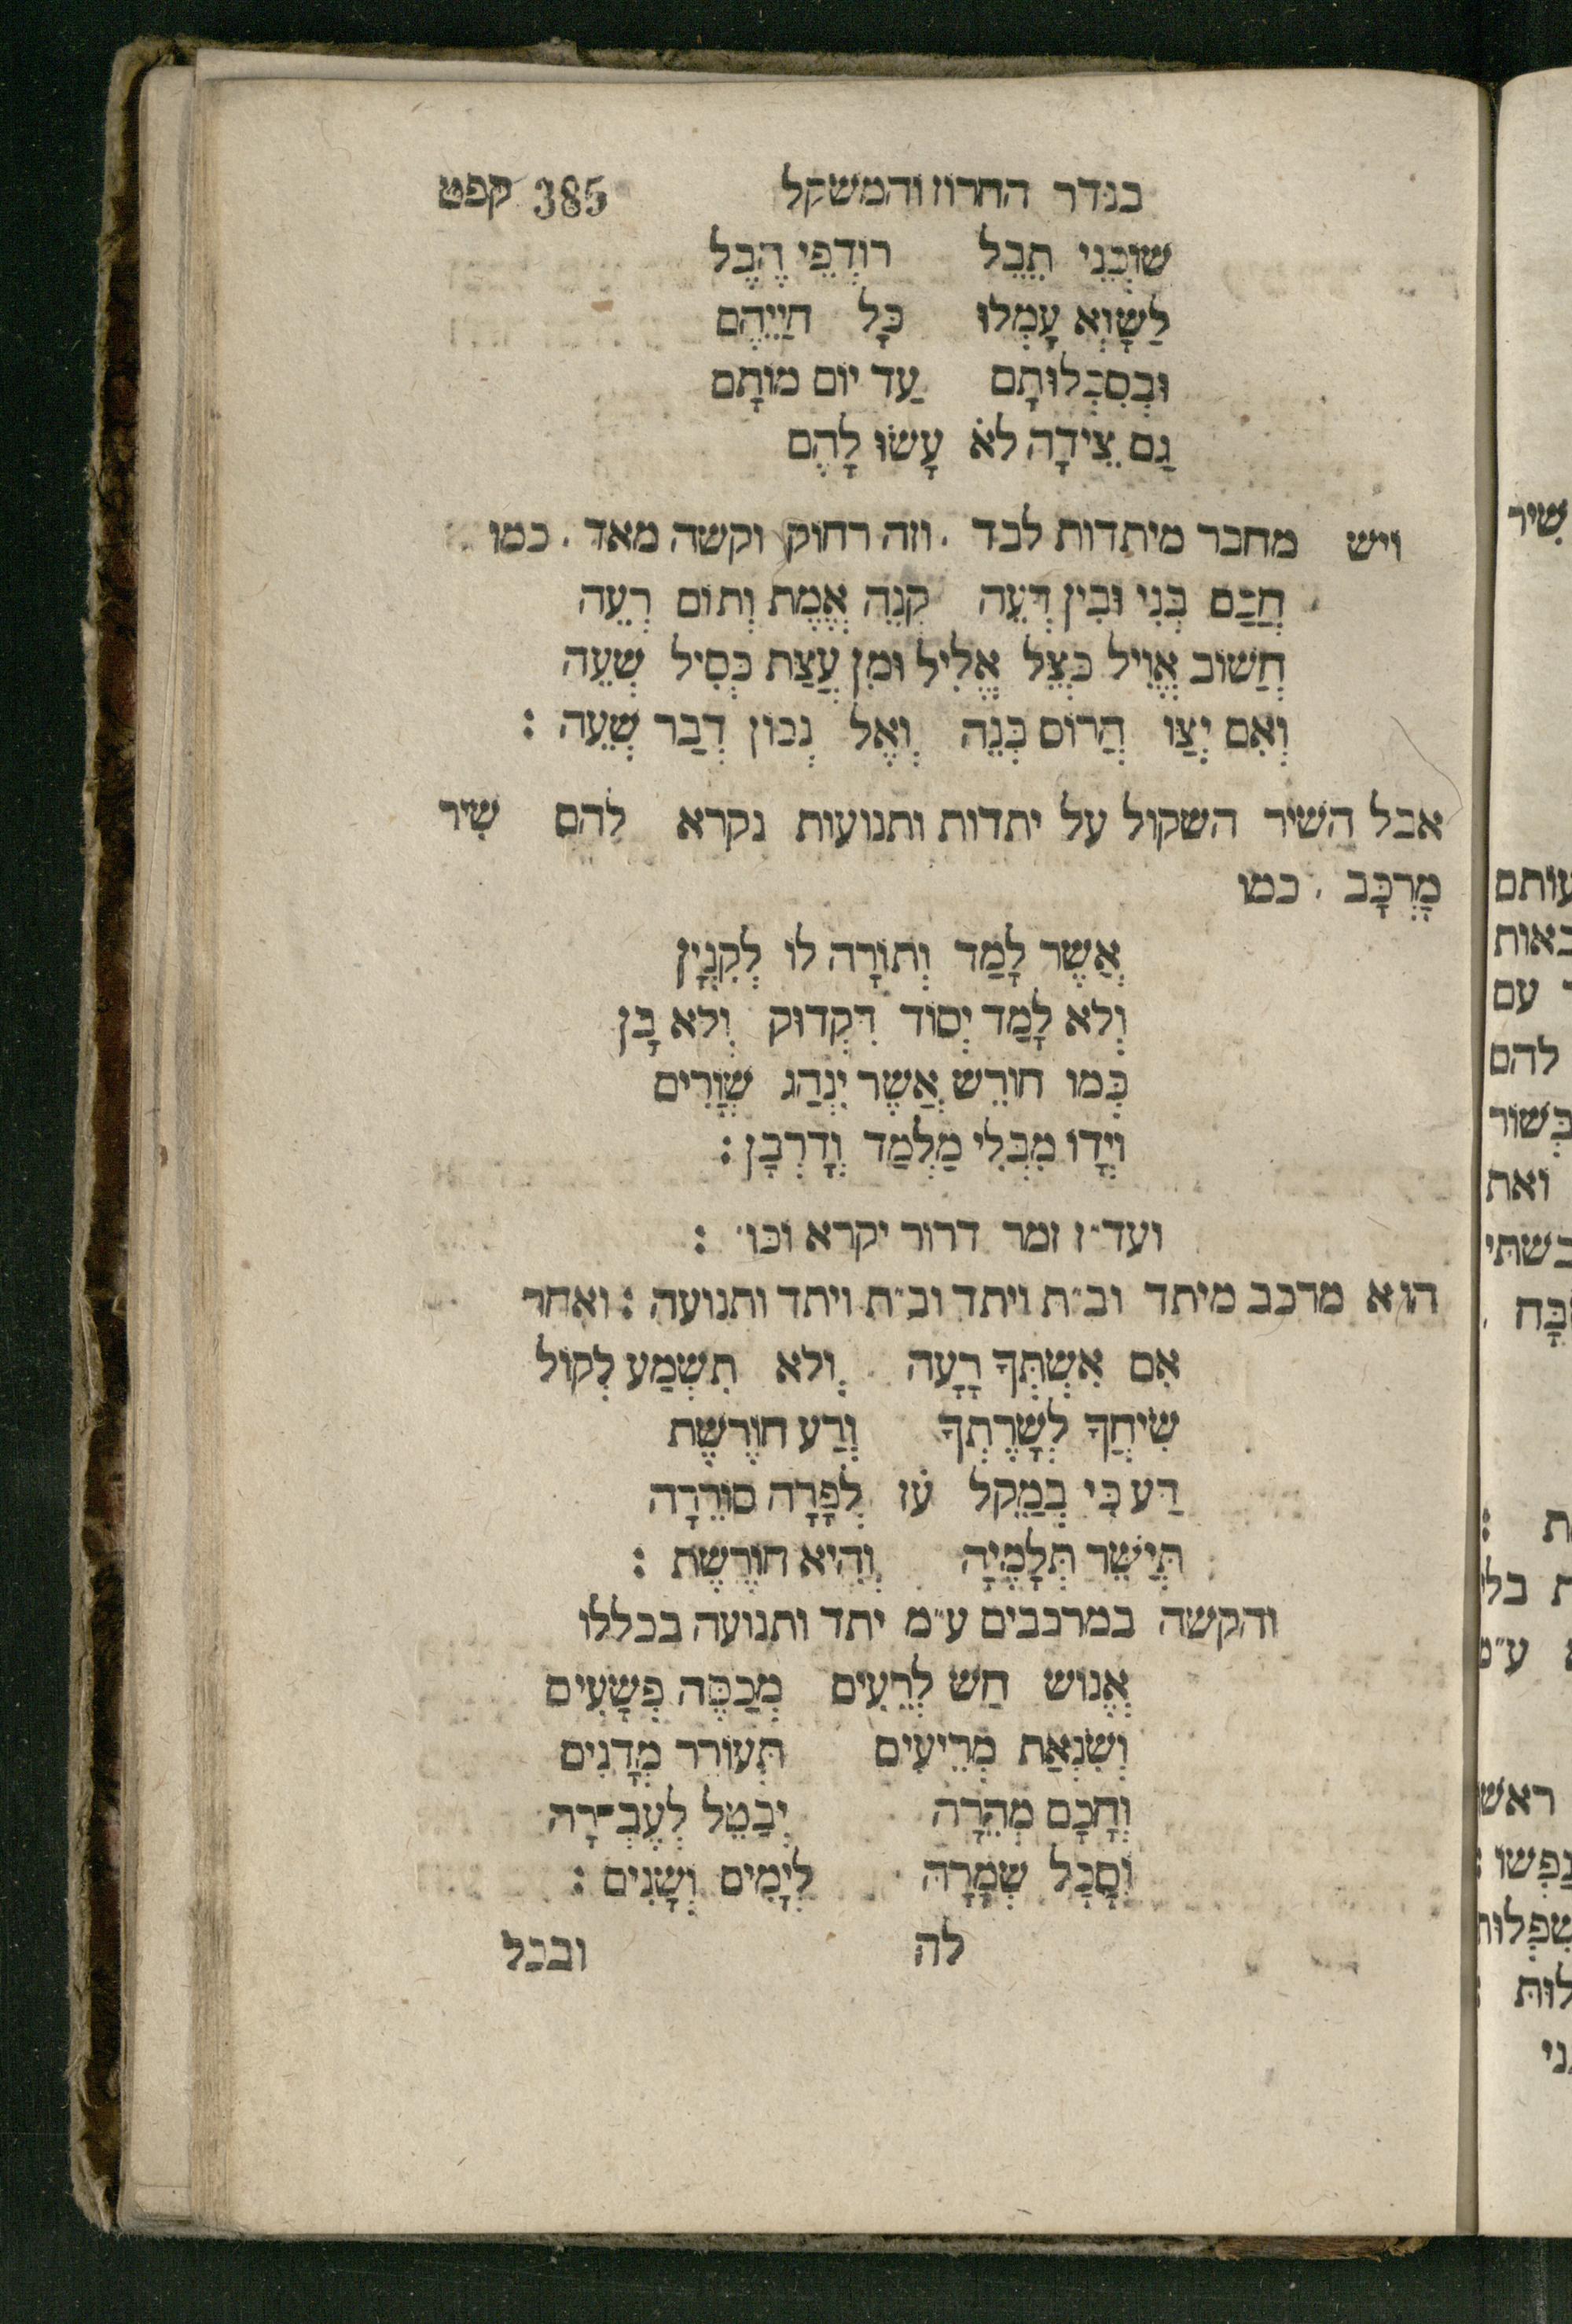 בגדר החרוז והמשקל 385 קפט
שׁוֹכְנֵי תֵבֵל רוֹדְפֵי הֶבֶל
לַשָּׁוְא עָמְלוּ כָּל חַיֵּיהֶם
וּבְסִכְלוּתָם עַד יוֹם מוֹתָם
גַם צֵידָה לֹא עָשׂוּ לָהֶם
ויש מחבר מיתדות לבד . וזה רחוק וקשה מאד . כמו
חֲכַם בְּנִי וּבִין דְּעֵה קְנֵה אֱמֶת וְתוֹם רְעֵה
חֲשׁוֹב אֱוִיל כְּצֵל אֱלִיל וּמִן עֲצַת כְּסִיל שְׁעֵה
וְאִם יְצַו הֲרוֹס בְּנֵה וְאֶל נְכוֹן דְּבַר שְׁעֵה :
אבל השיר השקול על יתדות ותנועות נקרא להם שִׁיר
מָרְכָּב . כמו
אֲשֶׁר לָמַד וְתוֹרָה לוֹ לְקִנְיָן
וְלֹא לָמַד יְסוֹד דִּקְדּוּק וְלֹא בָן
כְּמוֹ חוֹרֵשׁ אֲשֶׁר יִנְהַג שְׁוָרִים
וְיָדוֹ מִבְּלִי מַלְמַד וְדָרְבָן :
ועד״ז זמר דרור יקרא וכו׳ :
הוא מרכב מיתד וב״ת ויתד וב״ת ויתד ותנועה : ואחר
אִם אִשְׁתְּךָ רָעָה וְלֹא תִשְׁמַע לְקוֹל
שִׂיחֲךָ לְשָׁרֶתְךָ וְרַע חוֹרֶשֶׁת
דַּע כִּי בְמַקֵּל עֹז לְפָרָה סוֹרֵרָה
תְּיַשֵּׁר תְּלָמֶיהָ וְהִיא חוֹרֶשֶׁת :
והקשה במרכבים ע״מ יתד ותנועה בכללו
אֱנוֹשׁ חַשׁ לְרֵעִים מְכַסֶּה פְשָׁעִים
וְשִׂנְאַת מְרֵיעִים תְּעוֹרֵר מְדָנִים
וְחָכָם מְהֵרָה יְבַטֵּל לְעֶבְרָה
וְסָכָל שְׁמָרָהּ לְיָמִים וְשָׁנִים :
לה ובכל
שִׁיר
עותם
באות
עם
להם
בְּשׁוֹר
ואת
ת :
ע״מ
ראש
נַפְשׁוֹ :